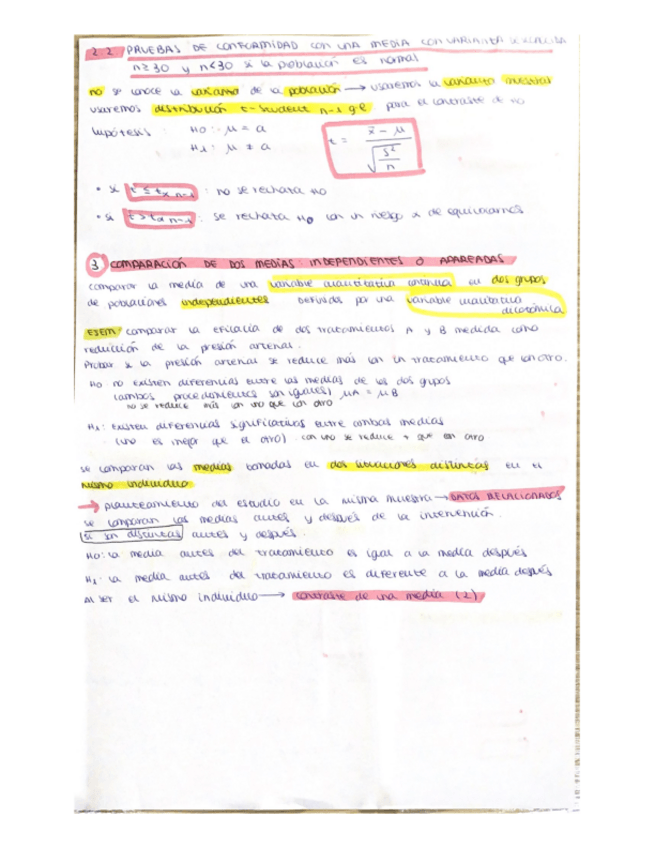 2.2 PRUEBAS DE CONFORMIDAD CON UNA MEDIA CON VARIANZA
n≥30 y n<30 si la población es normal
no se conoce la varianza de la población → usaremos la varianza muestral
usaremos distribución t-student n-1 g.l. para el contraste de H0
hipótesis: H0: μ = a
H1: μ ≠ a
t = x̄ - μ / √(s²/n)
• si t ≤ tα n-1 : no se rechaza H0
• si t > tα n-1 : se rechaza H0 con un riesgo α de equivocarnos
3 COMPARACIÓN DE DOS MEDIAS: INDEPENDIENTES O APAREADAS
comparar la media de una variable cuantitativa continua en dos grupos
de poblaciones independientes definidos por una variable cualitativa
dicotómica
EJEM: comparar la eficacia de dos tratamientos A y B medida como
reducción de la presión arterial.
Probar si la presión arterial se reduce más con un tratamiento que con otro.
H0: no existen diferencias entre las medias de los dos grupos
(ambos procedimientos son iguales) μA = μB
no se reduce más con uno que con otro
H1: Existen diferencias significativas entre ambas medias
(uno es mejor que el otro) - con uno se reduce + que con otro
se comparan las medias tomadas en dos situaciones distintas en el
mismo individuo
→ planteamiento del estudio en la misma muestra → DATOS RELACIONADOS
se comparan las medias antes y después de la intervención.
si son distintas antes y después.
H0: la media antes del tratamiento es igual a la media después
H1: la media antes del tratamiento es diferente a la media después
Al ser el mismo individuo → contraste de una media (2)